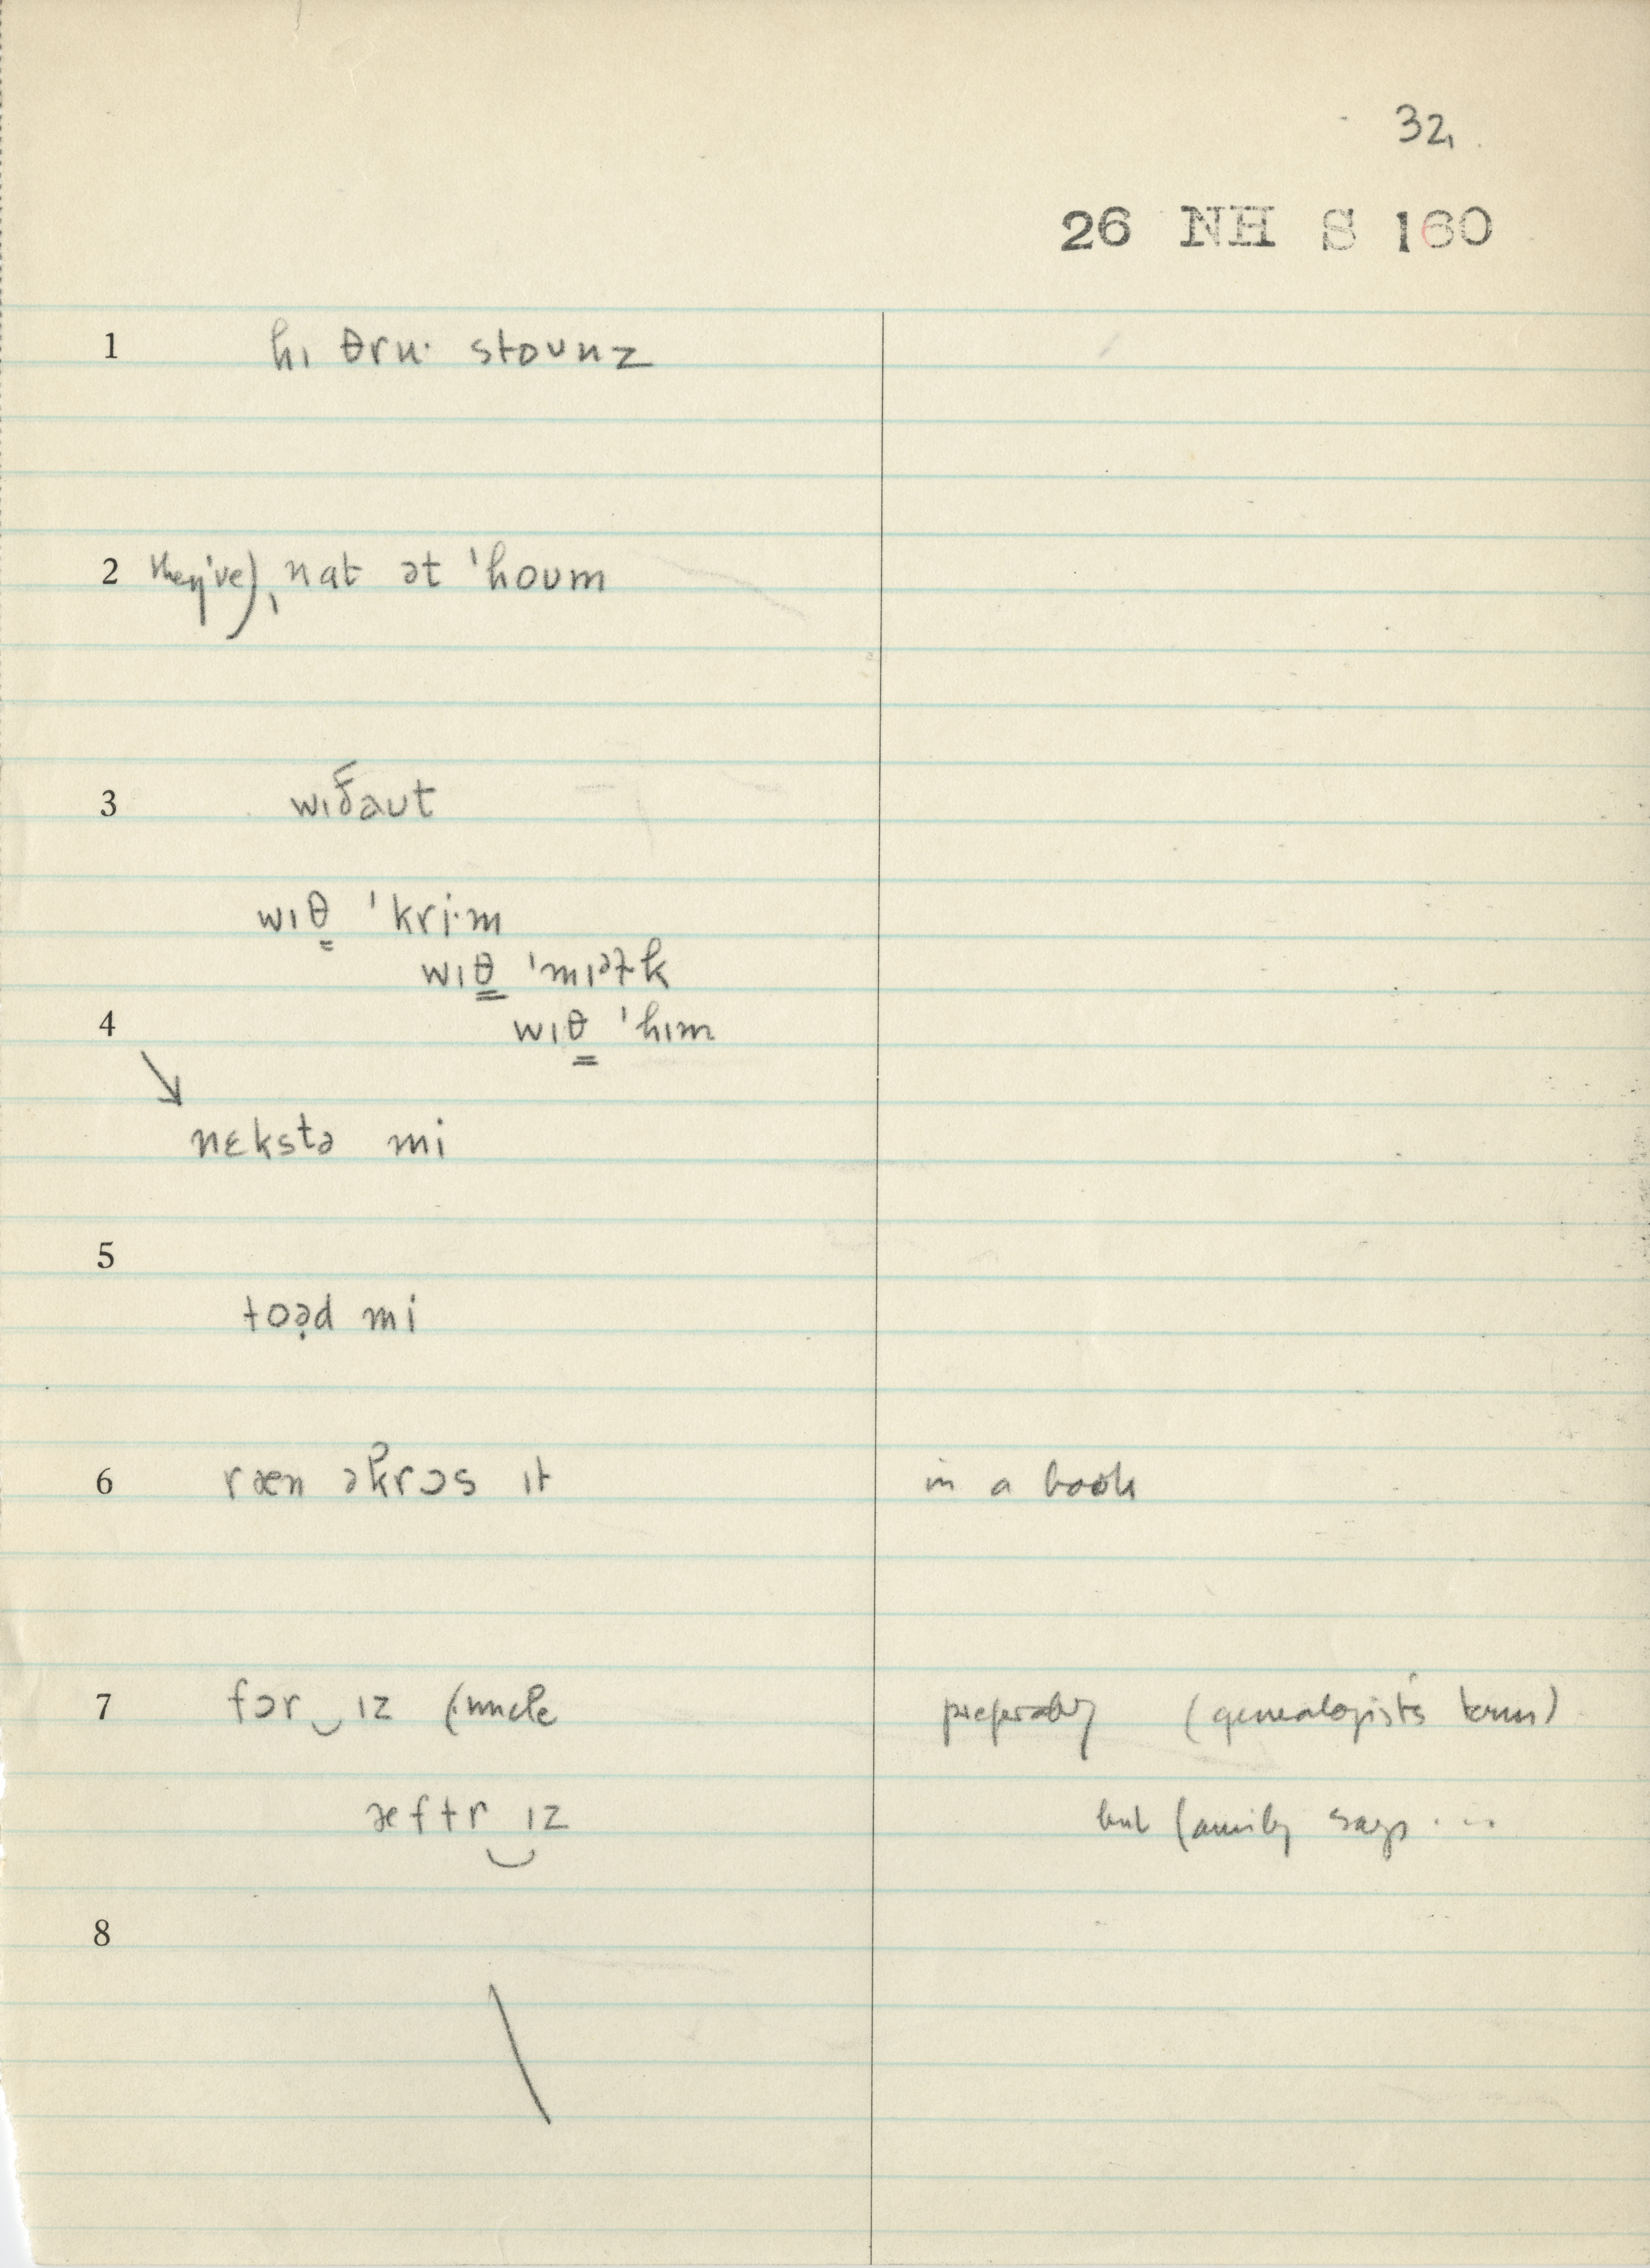 32.
26 NH S 160
1 hɪ θru· stoʊnz
2 they've) ˌnat ət ˈhoʊm
3 wɪðaʊt
wɪθ ˈkri·m
wɪθ ˈmɪəɫk
4 wɪθ ˈhɪm
↘
nɛkstə mi
5
toə̣d mi
6 ræn əkrɔs ɪt in a book
7 fɔr‿ɪz (uncle preferably (genealogist's term)
æftr‿ɪz but family says ...
8